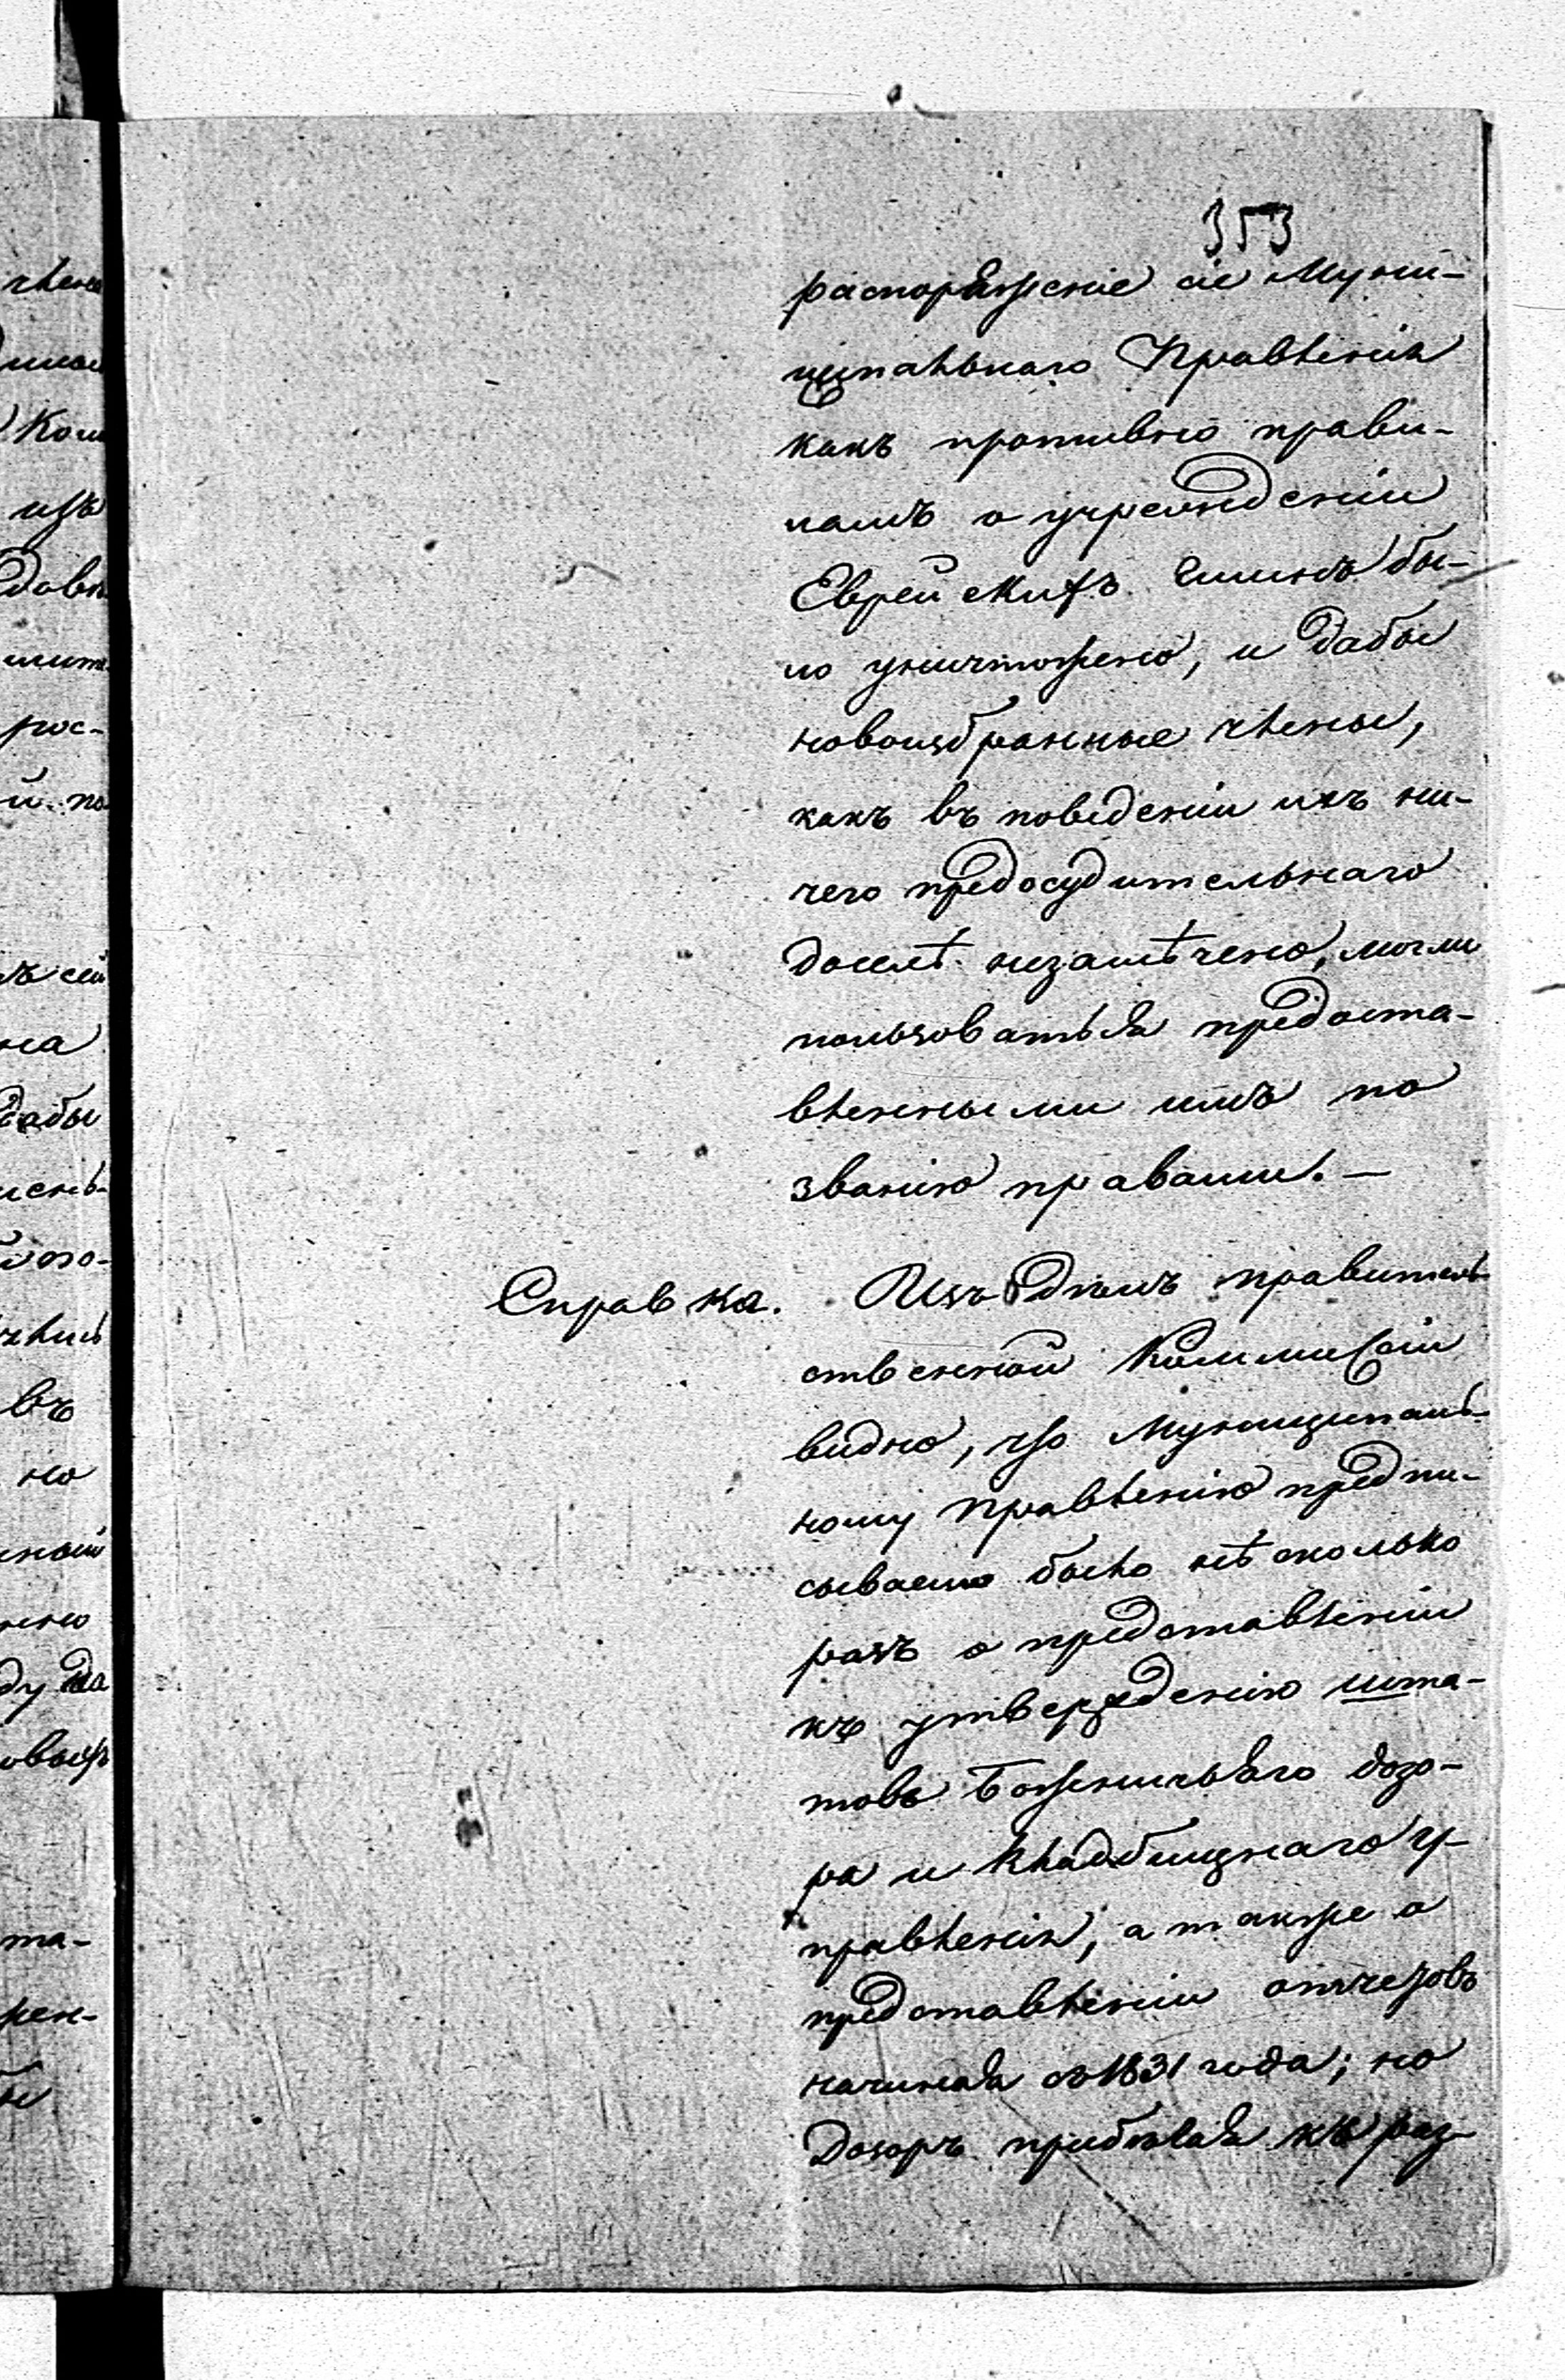 353
распоряженіе сіе Муни-
ципальнаго Правленія
какъ противно прави-
ламъ о учрежденіи
Еврейскихъ Гминъ бы-
ло уничтожено, и дабы
новоизбранные члены,
какъ въ поведеніи ихъ ни-
чего предосудительнаго
доселѣ незамѣчено, могли
пользоваться предоста-
вленными имъ по
званію правами. —
Справка. Изъ дѣлъ правитель-
ственной Коммисіи
видно, что Муниципаль-
ному Правленію предпи-
сываемо было нѣсколько
разъ о представленіи
къ утвержденію шта-
товъ Божничьяго дозо-
ра и Кладбищнаго у-
правленія, а также о
представленіи отчетовъ
начиная съ 1831 года; но
Дозоръ прибѣгая къ раз-
члены
Ком
изъ
рос-
й по
на
дабы
въ
но
ду да
та-
рен-